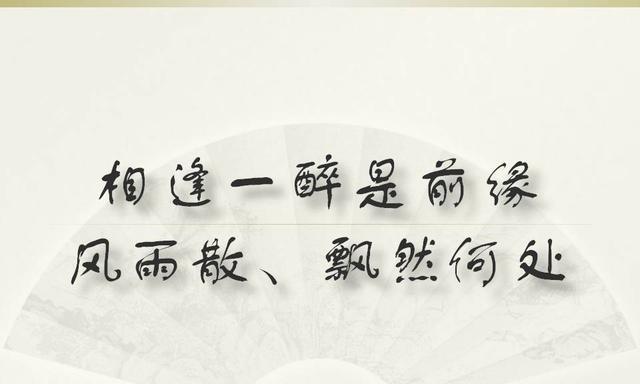 相逢一醉是前缘
风雨散、飘然何处